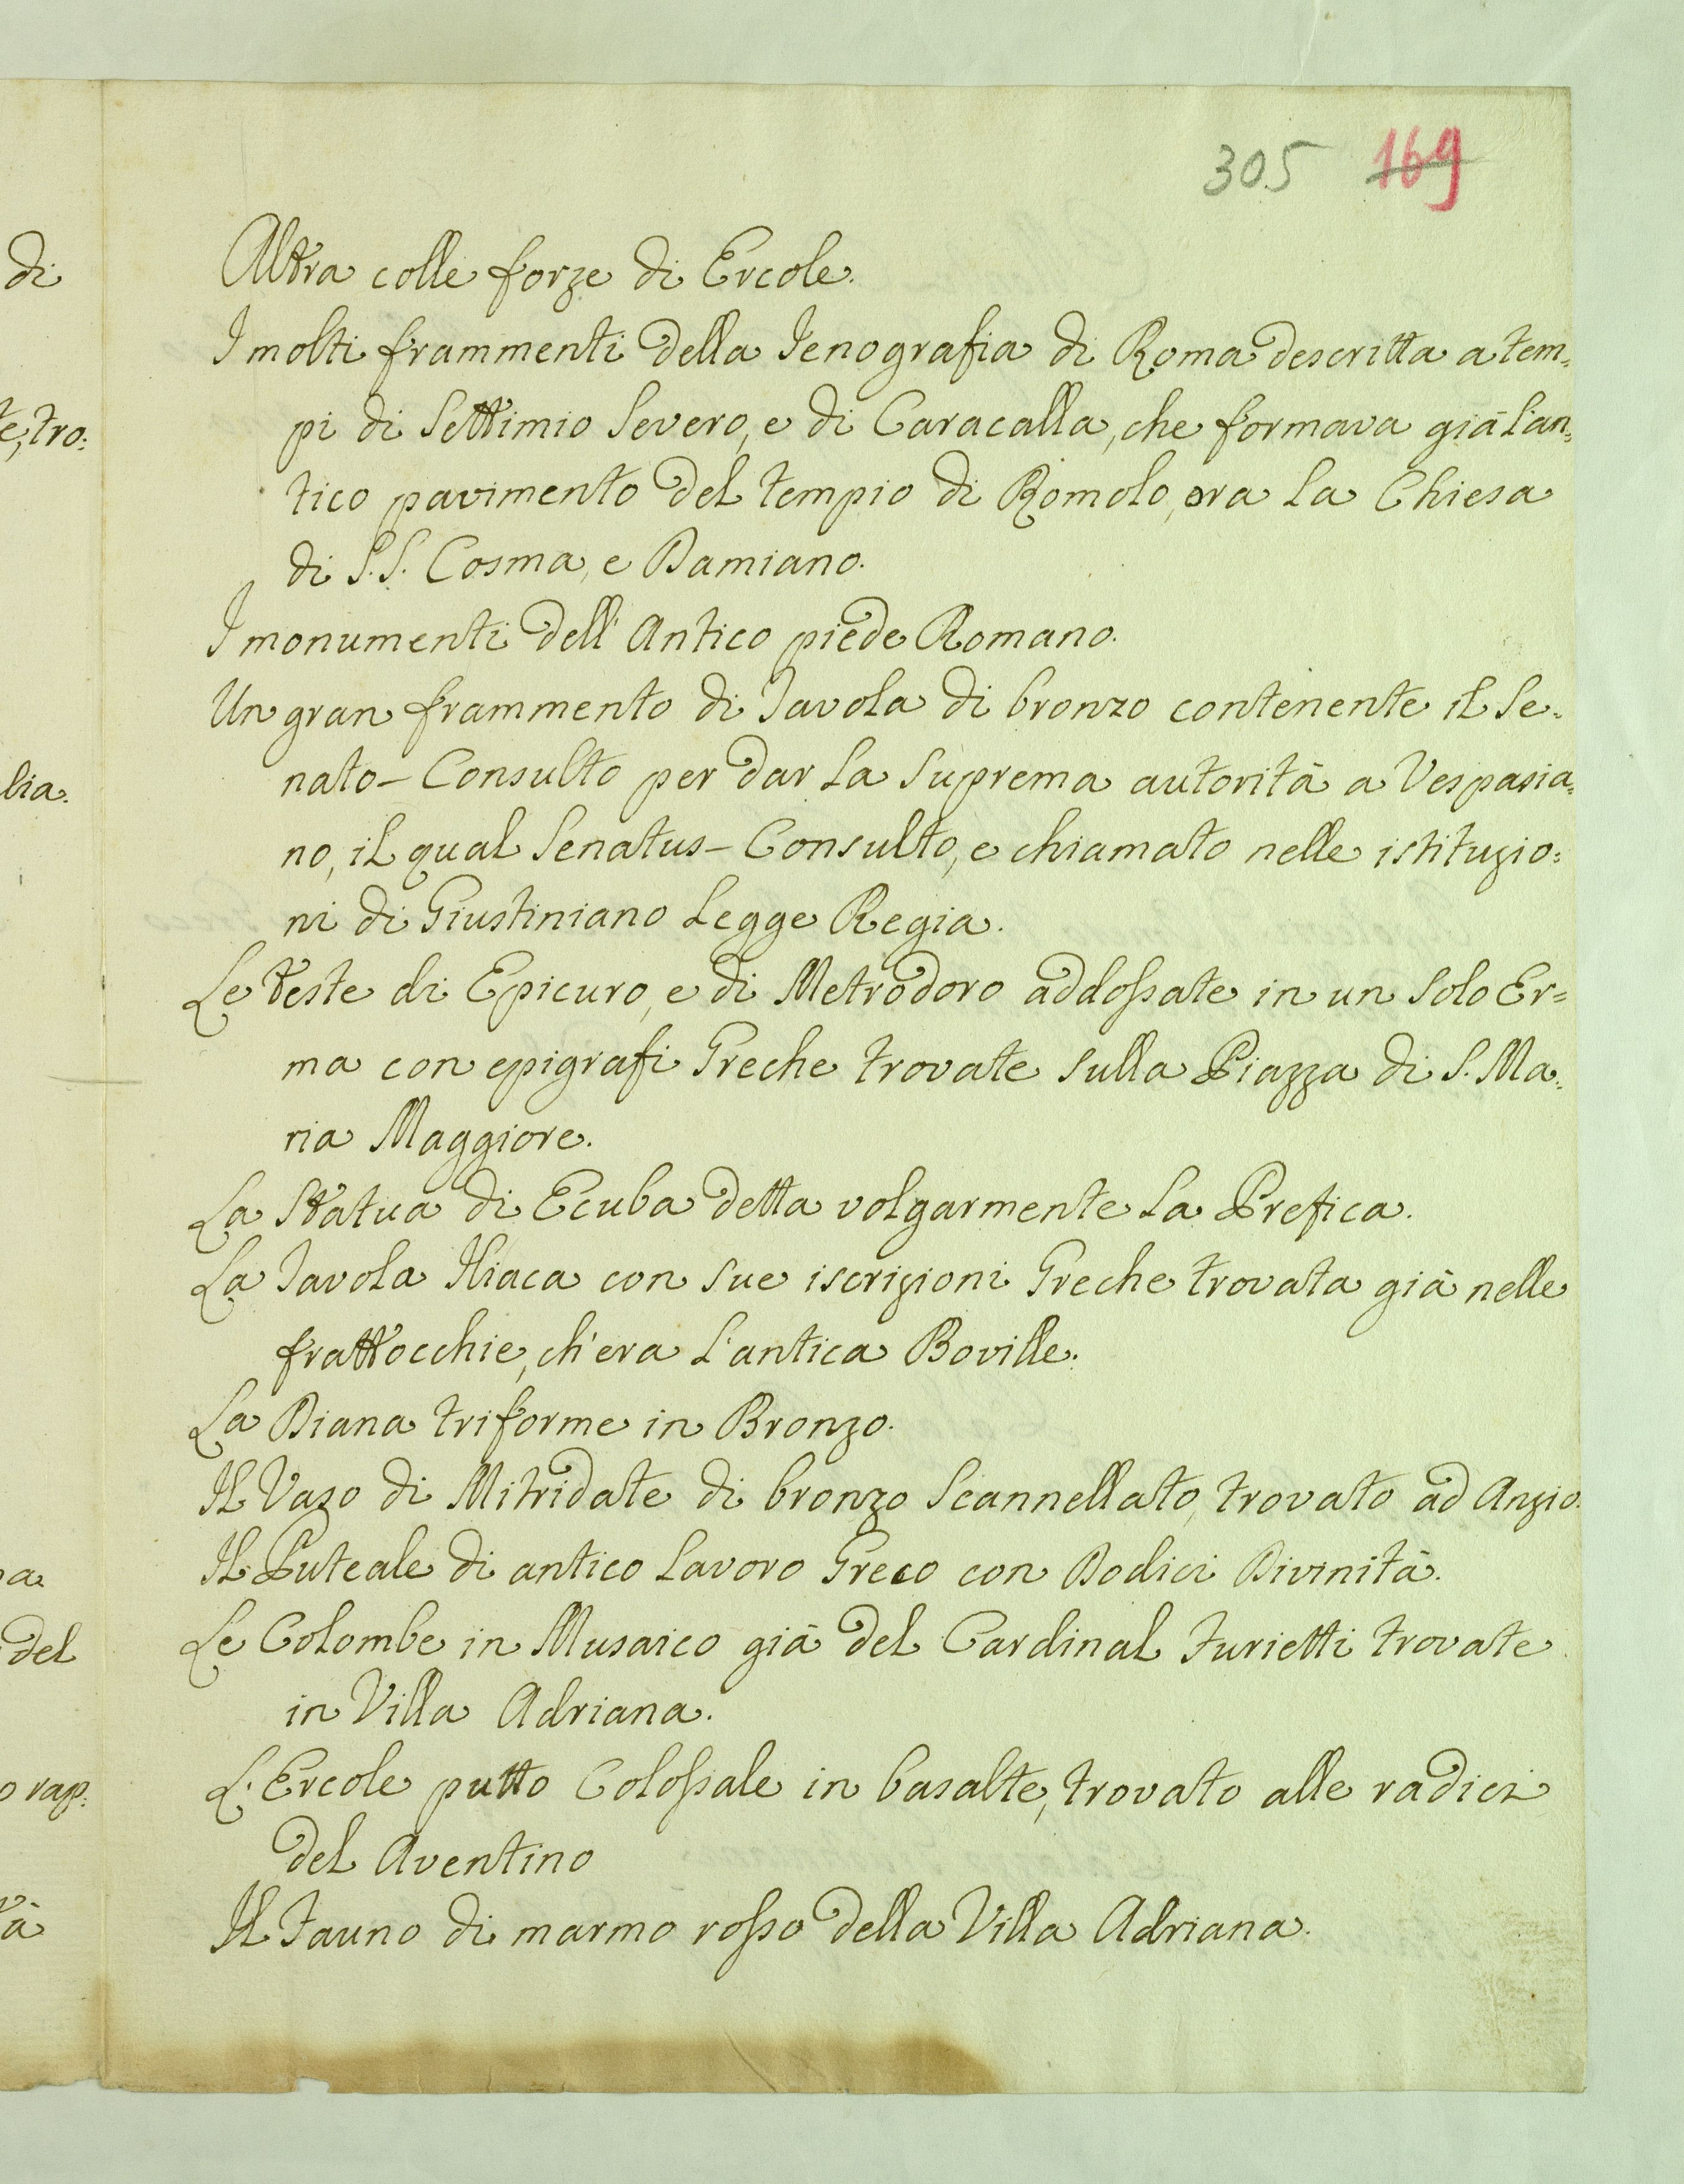 305 169
di
te, tro:
lia.
del
o rap:
Altra colle forze di Ercole.
I molti frammenti della Ienografia di Roma descritta a tem=
pi di Settimio Severo, e di Caracalla, che formava già l'an=
tico pavimento del tempio di Romolo, ora la Chiesa
di S.S. Cosma, e Damiano.
I monumenti dell' Antico piede Romano.
Un gran frammento di Tavola di bronzo contenente il Se=
nato-Consulto per dar la suprema autorità a Vespasia=
no, il qual Senatus-Consulto, e chiamato nelle istituzio=
ni di Giustiniano Legge Regia.
Le teste di Epicuro, e di Metrodoro addossate in un solo Er=
ma con epigrafi Greche trovate sulla Piazza di S. Ma=
ria Maggiore.
La Statua di Ecuba detta volgarmente la Prefica.
La Tavola Iliaca con sue iscrizioni Greche trovata già nelle
frattocchie, ch'era l'antica Boville.
La Diana triforme in Bronzo.
Il Vazo di Mitridate di bronzo Scannellato, trovato ad Anzio.
Il Puteale di antico Lavoro Greco con Dodici Divinità.
Le Colombe in Musaico già del Cardinal Furietti trovate
in Villa Adriana.
L'Ercole putto Colossale in basalte, trovato alle radici
del Aventino
Il Fauno di marmo rosso della Villa Adriana.